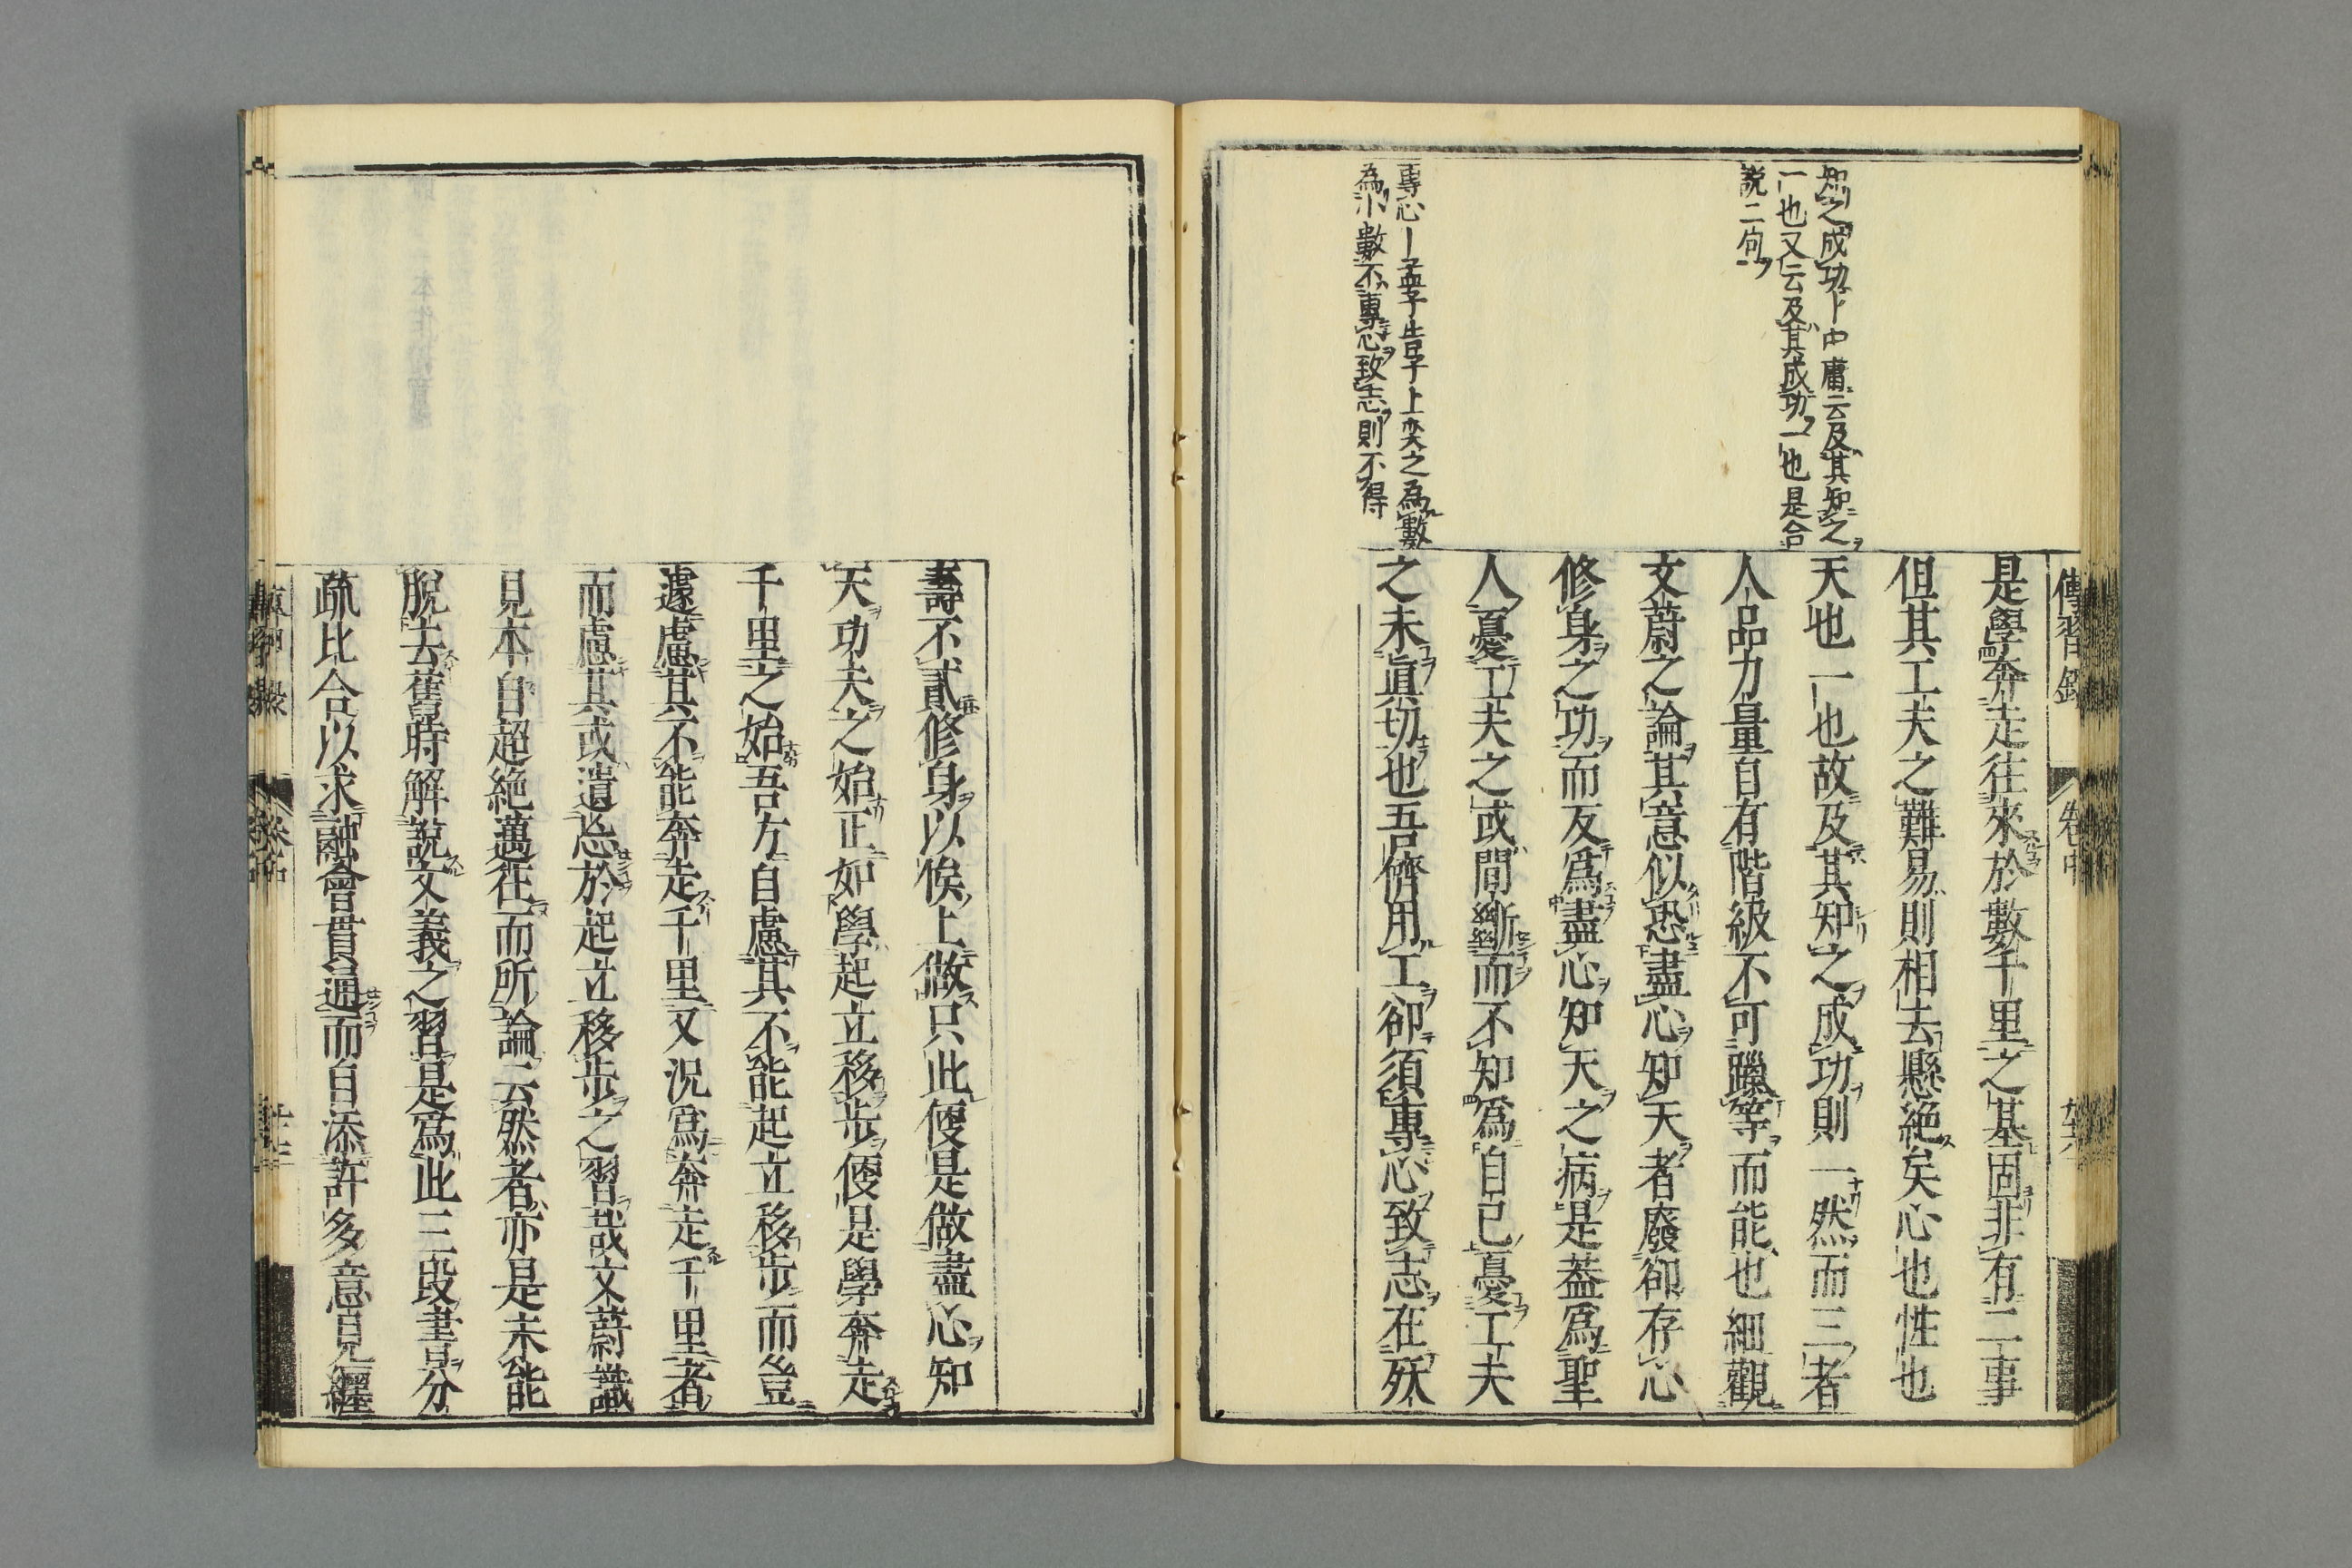 傳習錄
卷中
知之成功ー中庸云及其知之
一也又云及其成功一也是合
説二句
專心ー孟子告子上奕之為數
為小數不專心致志則不得
是學奔走往來於數千里之基固非有二事
但其工夫之難易則相去懸絕矣心也性也
天也一也故及其知之成功則一然而三者
人品力量自有階級不可躐等而能也細觀
文蔚之論其意似恐盡心知天者廢卻存心
修身之功而反爲盡心知天之病是葢爲聖
人憂工夫之或間斷而不知爲自己憂工夫
之未眞切也吾儕用工卻須專心致志在殀
壽不貳修身以俟上做只此便是做盡心知
天功夫之始正如學起立移步便是學奔走
千里之始吾方自慮其不能起立移步而豈
遽慮其不能奔走千里又況爲奔走千里者
而慮其或遺忘於起立移步之習哉文蔚識
見本自超絕邁往而所論云然者亦是未能
脫去舊時解說文義之習是爲此三段書分
疏比合以求融會貫通而自添許多意見纏